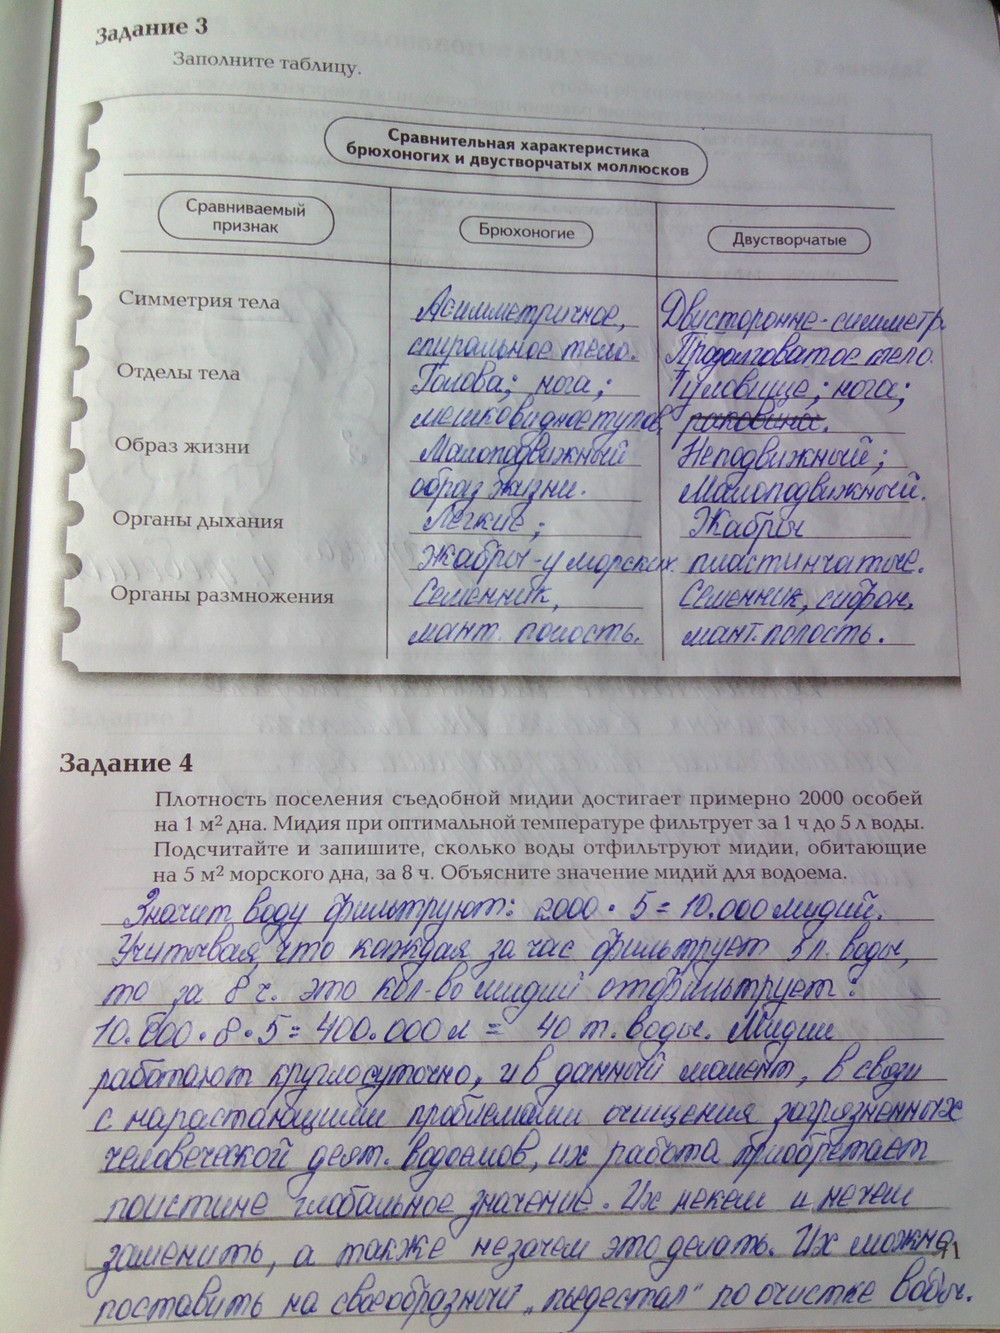 Задание 3
Заполните таблицу.
Сравнительная характеристика
брюхоногих и двустворчатых моллюсков
Сравниваемый
признак
Брюхоногие
Двустворчатые
Симметрия тела
Асимметричное,
спиральное тело.
Двусторонне-симметр.
Продолговатое тело.
Отделы тела
Голова; нога;
мешковидное тулов.
Туловище; нога;
раковина.
Образ жизни
Малоподвижный
образ жизни.
Неподвижный;
Малоподвижный.
Органы дыхания
Легкие;
Жабры-у морских.
Жабры
пластинчатые.
Органы размножения
Семенник,
мант. полость.
Семенник, сифон,
мант. полость.
Задание 4
Плотность поселения съедобной мидии достигает примерно 2000 особей
на 1 м² дна. Мидия при оптимальной температуре фильтрует за 1 ч до 5 л воды.
Подсчитайте и запишите, сколько воды отфильтруют мидии, обитающие
на 5 м² морского дна, за 8 ч. Объясните значение мидий для водоема.
Значит воду фильтруют: 2000 · 5 = 10.000 мидий.
Учитывая, что каждая за час фильтрует 5 л. воды,
то за 8 ч. это кол-во мидий отофильтрует:
10.000 · 8 · 5 = 400.000 л = 40 т. воды. Мидии
работают круглосуточно, и в данный момент, в связи
с нарастающими проблемами очищения загрязненных
человеческой деят. водоемов, их работа приобретает
поистине глобальное значение. Их некем и нечем
заменить, а также незачем это делать. Их можно
поставить на своеобразный „пьедестал" по очистке воды.